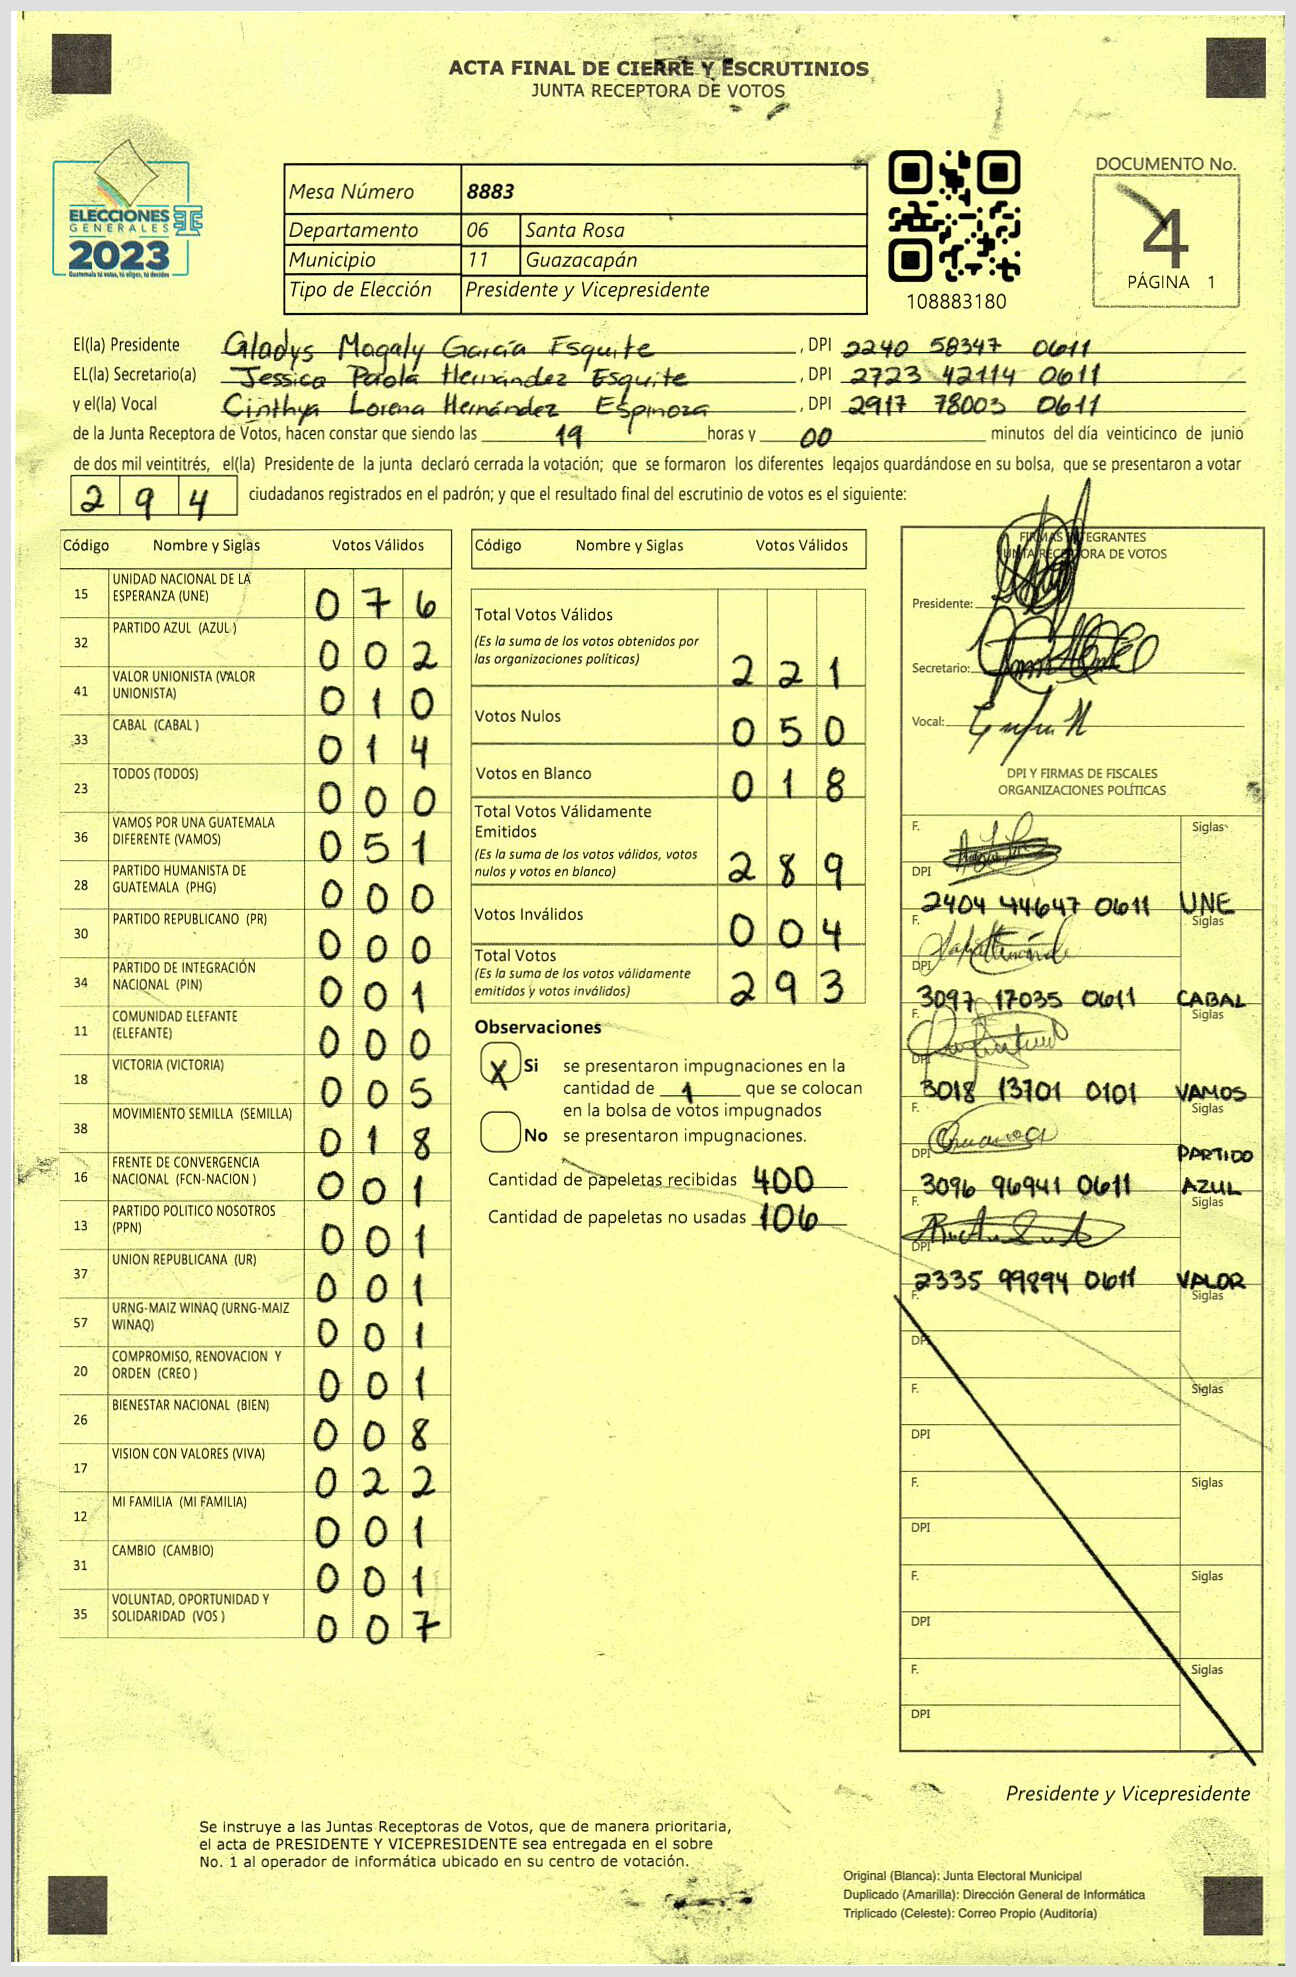 ACTA FINAL DE CIERRE Y ESCRUTINIOS
JUNTA RECEPTORA DE VOTOS
ELECCIONES
GENERALES
2023
Guatemala tú votas, tú eliges, tú decides
Mesa Número 8883
Departamento 06 Santa Rosa
Municipio 11 Guazacapán
Tipo de Elección Presidente y Vicepresidente
108883180
DOCUMENTO No.
4
PÁGINA 1
El(la) Presidente Gladys Magaly García Esquite, DPI 2240 58347 0611
EL(la) Secretario(a) Jessica Paola Hernández Esquite, DPI 2723 42114 0611
y el(la) Vocal Cinthya Lorena Hernández Espinoza, DPI 2917 78003 0611
de la Junta Receptora de Votos, hacen constar que siendo las 19 horas y 00 minutos del día veinticinco de junio
de dos mil veintitrés, el(la) Presidente de la junta declaró cerrada la votación; que se formaron los diferentes legajos quardándose en su bolsa, que se presentaron a votar
294 ciudadanos registrados en el padrón; y que el resultado final del escrutinio de votos es el siguiente:
Código Nombre y Siglas Votos Válidos
15 UNIDAD NACIONAL DE LA
ESPERANZA (UNE) 076
32 PARTIDO AZUL (AZUL ) 002
41 VALOR UNIONISTA (VALOR
UNIONISTA) 010
33 CABAL (CABAL ) 014
23 TODOS (TODOS) 000
36 VAMOS POR UNA GUATEMALA
DIFERENTE (VAMOS) 051
28 PARTIDO HUMANISTA DE
GUATEMALA (PHG) 000
30 PARTIDO REPUBLICANO (PR) 000
34 PARTIDO DE INTEGRACIÓN
NACIONAL (PIN) 001
11 COMUNIDAD ELEFANTE
(ELEFANTE) 000
18 VICTORIA (VICTORIA) 005
38 MOVIMIENTO SEMILLA (SEMILLA) 018
16 FRENTE DE CONVERGENCIA
NACIONAL (FCN-NACION ) 001
13 PARTIDO POLITICO NOSOTROS
(PPN) 001
37 UNION REPUBLICANA (UR) 001
57 URNG-MAIZ WINAQ (URNG-MAIZ
WINAQ) 001
20 COMPROMISO, RENOVACION Y
ORDEN (CREO ) 001
26 BIENESTAR NACIONAL (BIEN) 008
17 VISION CON VALORES (VIVA) 022
12 MI FAMILIA (MI FAMILIA) 001
31 CAMBIO (CAMBIO) 001
35 VOLUNTAD, OPORTUNIDAD Y
SOLIDARIDAD (VOS ) 007
Código Nombre y Siglas Votos Válidos
Total Votos Válidos
(Es la suma de los votos obtenidos por
las organizaciones políticas) 221
Votos Nulos 050
Votos en Blanco 018
Total Votos Válidamente
Emitidos
(Es la suma de los votos válidos, votos
nulos y votos en blanco) 289
Votos Inválidos 004
Total Votos
(Es la suma de los votos válidamente
emitidos y votos inválidos) 293
Observaciones
X Si se presentaron impugnaciones en la
cantidad de 1 que se colocan
en la bolsa de votos impugnados
No se presentaron impugnaciones.
Cantidad de papeletas recibidas 400
Cantidad de papeletas no usadas 106
FIRMAS INTEGRANTES
JUNTA RECEPTORA DE VOTOS
Presidente:
Secretario:
Vocal:
DPI Y FIRMAS DE FISCALES
ORGANIZACIONES POLÍTICAS
F. Siglas
DPI 2404 44647 0611 UNE
F. Siglas
DPI 3097 17035 0611 CABAL
F. Siglas
DPI 3018 13701 0101 VAMOS
F. Siglas
DPI 3096 96941 0611 PARTIDO
AZUL
F. Siglas
DPI 2335 99894 0611 VALOR
F. Siglas
DPI
F. Siglas
DPI
F. Siglas
DPI
F. Siglas
DPI
F. Siglas
DPI
Presidente y Vicepresidente
Se instruye a las Juntas Receptoras de Votos, que de manera prioritaria,
el acta de PRESIDENTE Y VICEPRESIDENTE sea entregada en el sobre
No. 1 al operador de informática ubicado en su centro de votación.
Original (Blanca): Junta Electoral Municipal
Duplicado (Amarilla): Dirección General de Informática
Triplicado (Celeste): Correo Propio (Auditoría)